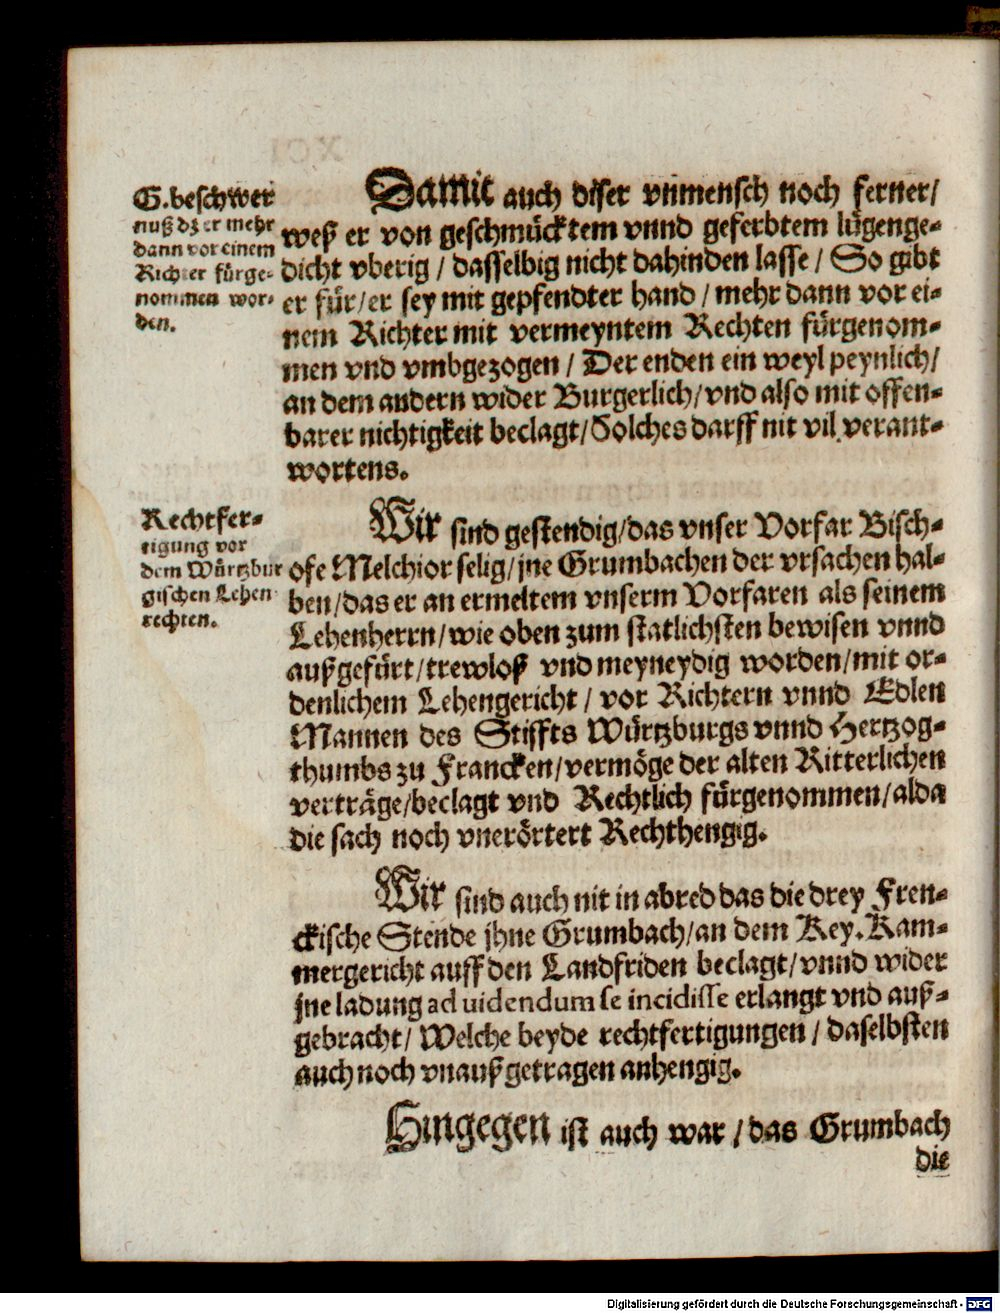 G. beschwer
nuß dz er mehr
dann vor einem
Richter fürge-
nommen wor-
den.
Damit auch diser vnmensch noch ferner/
weß er von geschmücktem vnnd geferbtem lügenge-
dicht vberig / dasselbig nicht dahinden lasse / So gibt
er für/er sey mit gepfendter hand / mehr dann vor ei-
nem Richter mit vermeyntem Rechten fürgenom-
men vnd vmbgezogen / Der enden ein weyl peynlich/
an dem andern wider Burgerlich/vnd also mit offen-
barer nichtigkeit beclagt/Solches darff nit vil verant-
wortens.
Rechtfer-
tigung vor
dem Würtzbur
gischen Lehen
rechten.
Wir sind gestendig/das vnser Vorfar Bisch-
ofe Melchior selig/jne Grumbachen der vrsachen hal-
ben/das er an ermeltem vnserm Vorfaren als seinem
Lehenherrn/wie oben zum statlichsten bewisen vnnd
außgefürt/trewloß vnd meyneydig worden/mit or-
denlichem Lehengericht / vor Richtern vnnd Edlen
Mannen des Stiffts Würtzburgs vnnd Hertzog-
thumbs zu Francken/vermöge der alten Ritterlichen
verträge/beclagt vnd Rechtlich fürgenommen/alda
die sach noch vnerörtert Rechthengig.
Wir sind auch nit in abred das die drey Fren-
ckische Stende jhne Grumbach/an dem Key. Kam-
mergericht auff den Landfriden beclagt/vnnd wider
jne ladung ad uidendum se incidisse erlangt vnd auß-
gebracht/ Welche beyde rechtfertigungen / daselbsten
auch noch vnaußgetragen anhengig.
Hingegen ist auch war / das Grumbach
die
Digitalisierung gefördert durch die Deutsche Forschungsgemeinschaft - DFG